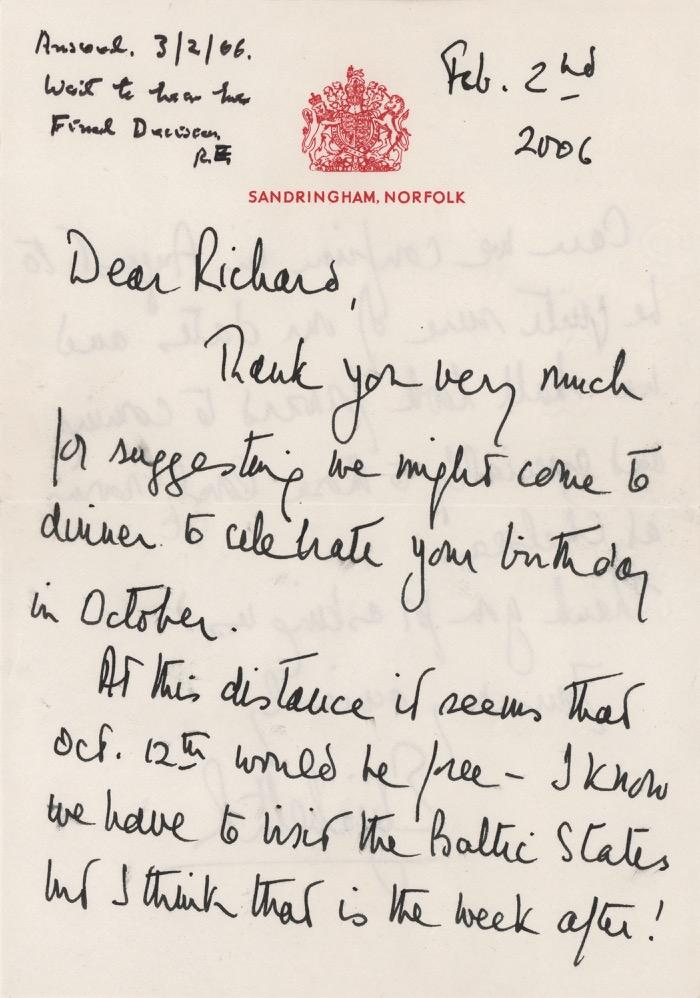 Answered. 3/2/06.
Wait to hear her
Final Decision
RE
Feb. 2nd
2006
SANDRINGHAM, NORFOLK
Dear Richard,
Thank you very much
for suggesting we might come to
dinner to celebrate your birthday
in October.
At this distance it seems that
Oct. 12th would be free – I know
we have to visit the Baltic States
but I think that is the week after!